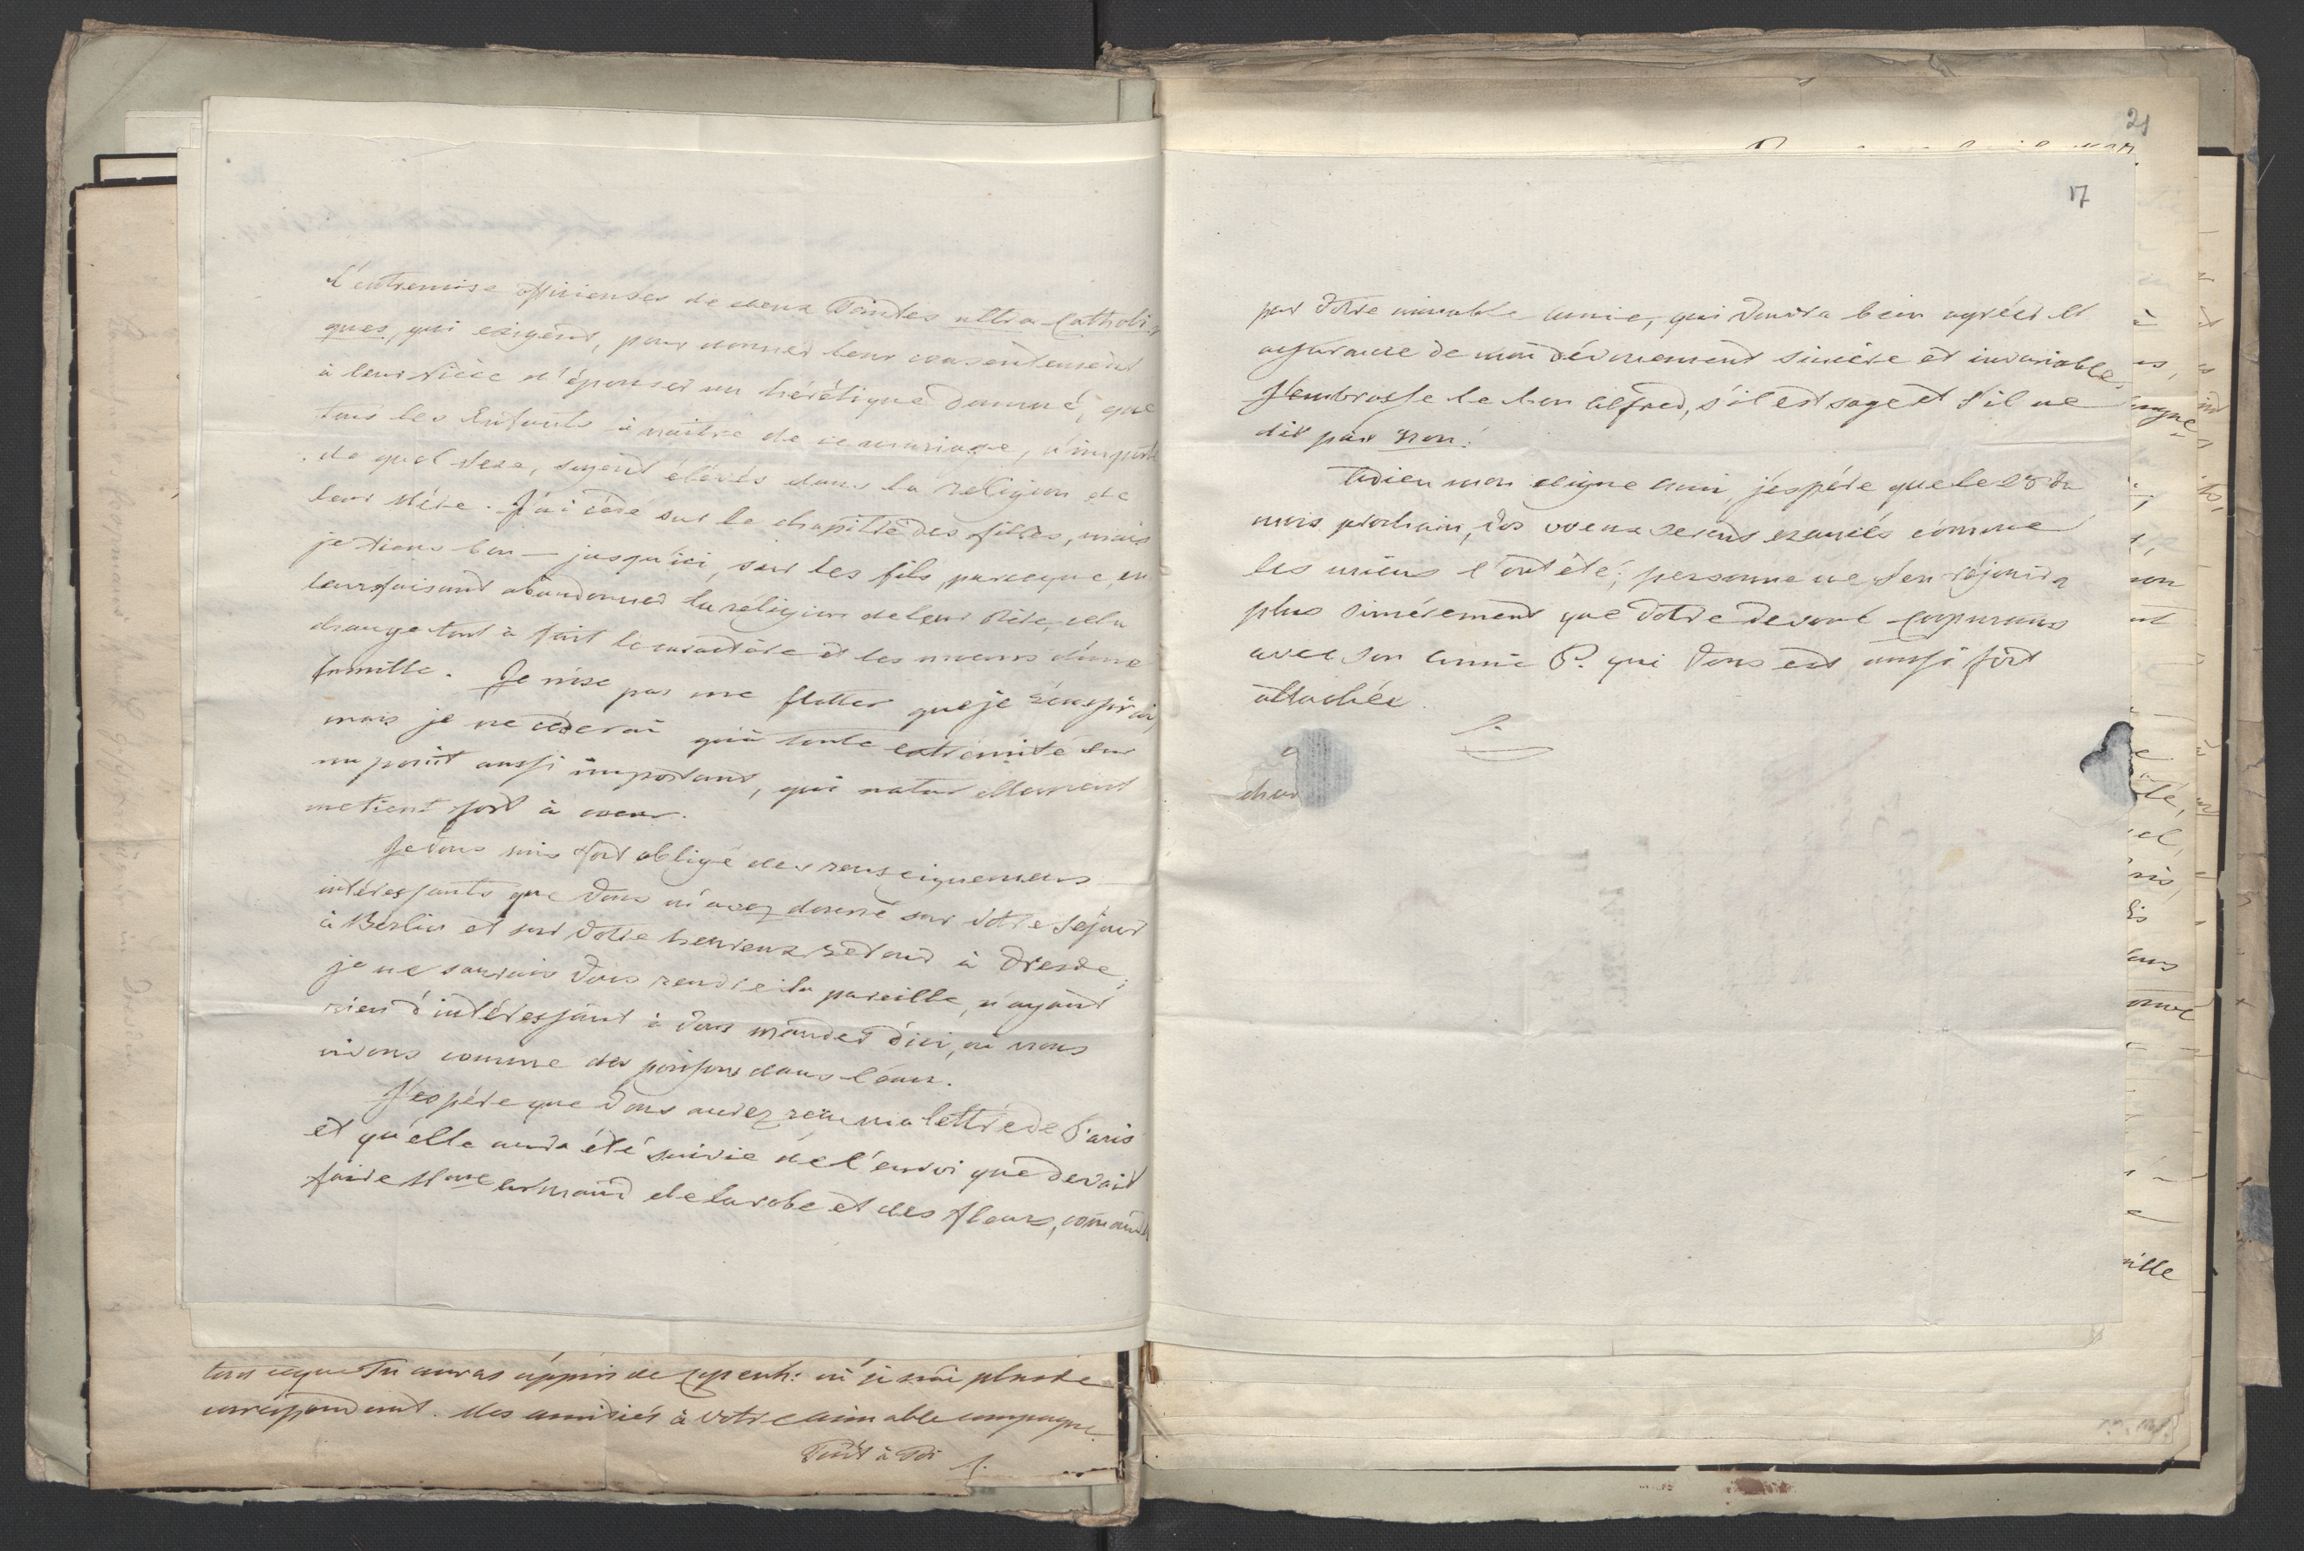 l'entremise officieuses de deux Tantes ultra-Catholi-
ques, qui exigent, pour donner leur consentement
à leur Nièce d'épouser un hérétique damné, que
tous les Enfants à naître de ce mariage, n'importe
de quel Sexe, soyent élévés dans la réligion de
leur Mère. J'ai cédé sur le chapitre des filles, mais
je tiens bon — jusqu'ici, sur les fils, parceque, en
leur faisant abandonner la réligion de leur Père, cela
change tout à fait le caractère et les moeurs d'une
famille. Je n'ose pas me flatter que je réussirai,
mais je ne céderai qu'à toute extrémité sur
un point aussi important, qui naturellement
me tient fort à coeur.
Je vous suis fort obligé des renseignemens
intéressants que vous m'avez donné sur votre séjour
à Berlin et sur votre heureux retour à Dresde;
je ne saurais vous rendre la pareille, n'ayant
rien d'intéressant à vous mander d'ici, où nous
vivons comme des poissons dans l'eau.
J'espère que vous aurez reçu ma lettre de Paris
et qu'elle aura été suivie de l'envoi que devait
faire Mme Armand de la robe et des fleurs,
tout ce que Tu auras appris de où je n'ai plus de
correspondant. Mes amitiés à votre aimable compagne.
Tout à Toi
21
17
par votre aimable amie, qui voudra bien agréer l'
assurance de mon dévouement sincère et invariable.
J'embrasse le bon Alfred, s'il est sage et s'il ne
dit pas non!
Adieu mon digne ami, j'espère que le 23 du
mois prochain, vos voeux seront exaucés comme
les miens l'ont été; personne ne s'en réjouira
plus sincérement que votre dévoué
avec son amie P. qui vous est aussi fort
attachée.